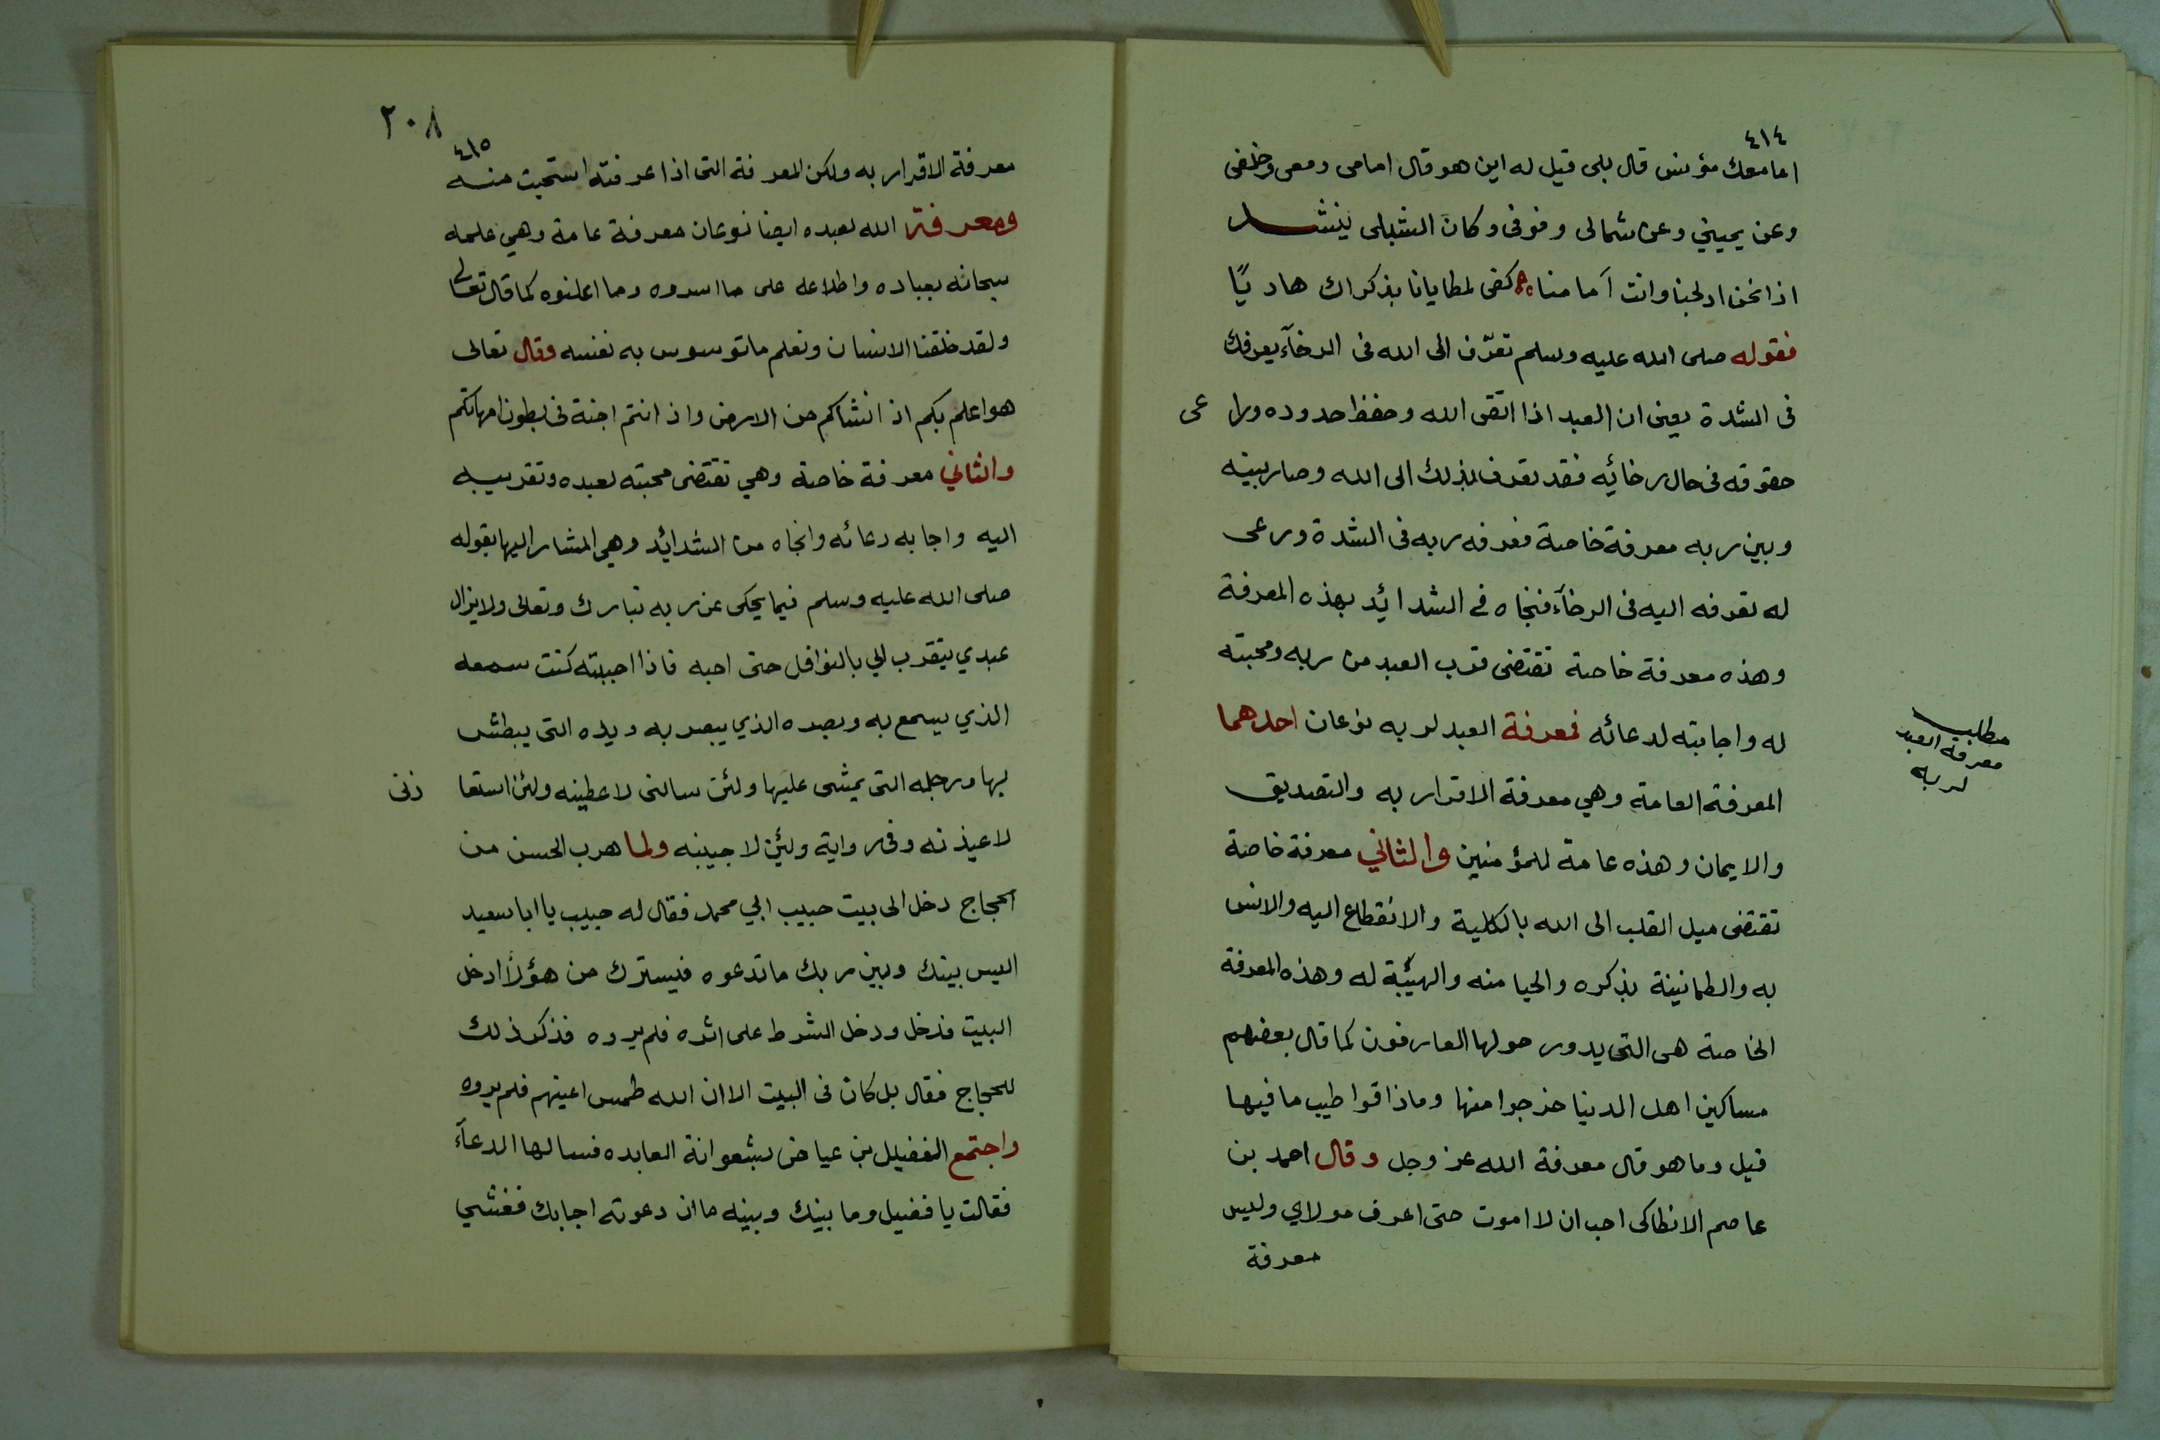 ٤١٤
اما معك مؤنس قال بلى قيل له اين هو قال امامى ومعى وخلفى
وعن يميني وعن شمالى وفوقى وكان الشبلى ينشد
اذا نحن ادلجنا وانت أمامنا كفى لمطايانا بذكراك هاديًا
فقوله صلى الله عليه وسلم تعرّف الى الله فى الرخآء يعرفك
فى الشدة يعنى ان العبد اذا اتقى الله وحفظ حدوده ورا عى
حقوقه فى حال رخائه فقد تعرف بذلك الى الله وصار بينه
وبين ربه معرفة خاصة فعرفه ربه فى الشدة ورعى
له تعرفه اليه فى الرخآء فنجاه فى الشدائد بهذه المعرفة
وهذه معرفة خاصة تقتضى قرب العبد من ربه ومحبته
له واجابته لدعائه فمعرفة العبد لربه نوعان احدهما
المعرفة العامة وهي معرفة الاقرار به والتصديق
والايمان وهذه عامة للمؤمنين والثاني معرفة خاصة
تقتضى ميل القلب الى الله بالكلية والانقطاع اليه والانس
به والطمانينة بذكره والحيا منه والهيبة له وهذه المعرفة
الخاصة هى التى يدور حولها العارفون كما قال بعضهم
مساكين اهل الدنيا خرجوا منها وماذاقوا طيب ما فيها
قيل وما هو قال معرفة الله عز وجل وقال احمد بن
عاصم الانطاكى احب ان لا اموت حتى اعرف مولاي وليس
معرفة
مطلب
معرفة العبد
لربه
٢٠٨
٤١٥
معرفة الاقرار به ولكن المعرفة التى اذا عرفته استحيت منه
ومعرفة الله لعبده ايضا نوعان معرفة عامة وهي علمه
سبحانه بعباده واطلاعه على ما اسروه وما اعلنوه كما قال تعالى
ولقد خلقنا الانسان ونعلم ما توسوس به نفسه وقال تعالى
هو اعلم بكم اذ انشاكم من الارض واذ انتم اجنة فى بطون امهاتكم
والثاني معرفة خاصة وهي تقتضى محبته لعبده وتقريبه
اليه واجابه دعائه وانجاه من الشدائد وهي المشار اليها بقوله
صلى الله عليه وسلم فيما يحكى عن ربه تبارك وتعالى ولا يزال
عبدي يتقرب الي بالنوافل حتى احبه فاذا احببته كنت سمعه
الذي يسمع به وبصره الذي يبصر به ويده التى يبطش
بها ورجله التى يمشى عليها ولئن سالنى لاعطينه ولئن استعا ذنى
لاعيذنه وفى رواية ولئن لاجيبنه ولما هرب الحسن من
الحجاج دخل الى بيت حبيب ابي محمد فقال له حبيب يا ابا سعيد
اليس بينك وبين ربك ما تدعوه فيسترك من هؤلأ ادخل
البيت فدخل ودخل الشرط على اثره فلم يروه فذكر ذلك
للحجاج فقال بل كان فى البيت الا ان الله طمس اعينهم فلم يروه
واجتمع الفضيل بن عياض بشعوانة العابده فسالها الدعآء
فقالت يا فضيل وما بينك وبينه ما ان دعوته اجابك فغشي